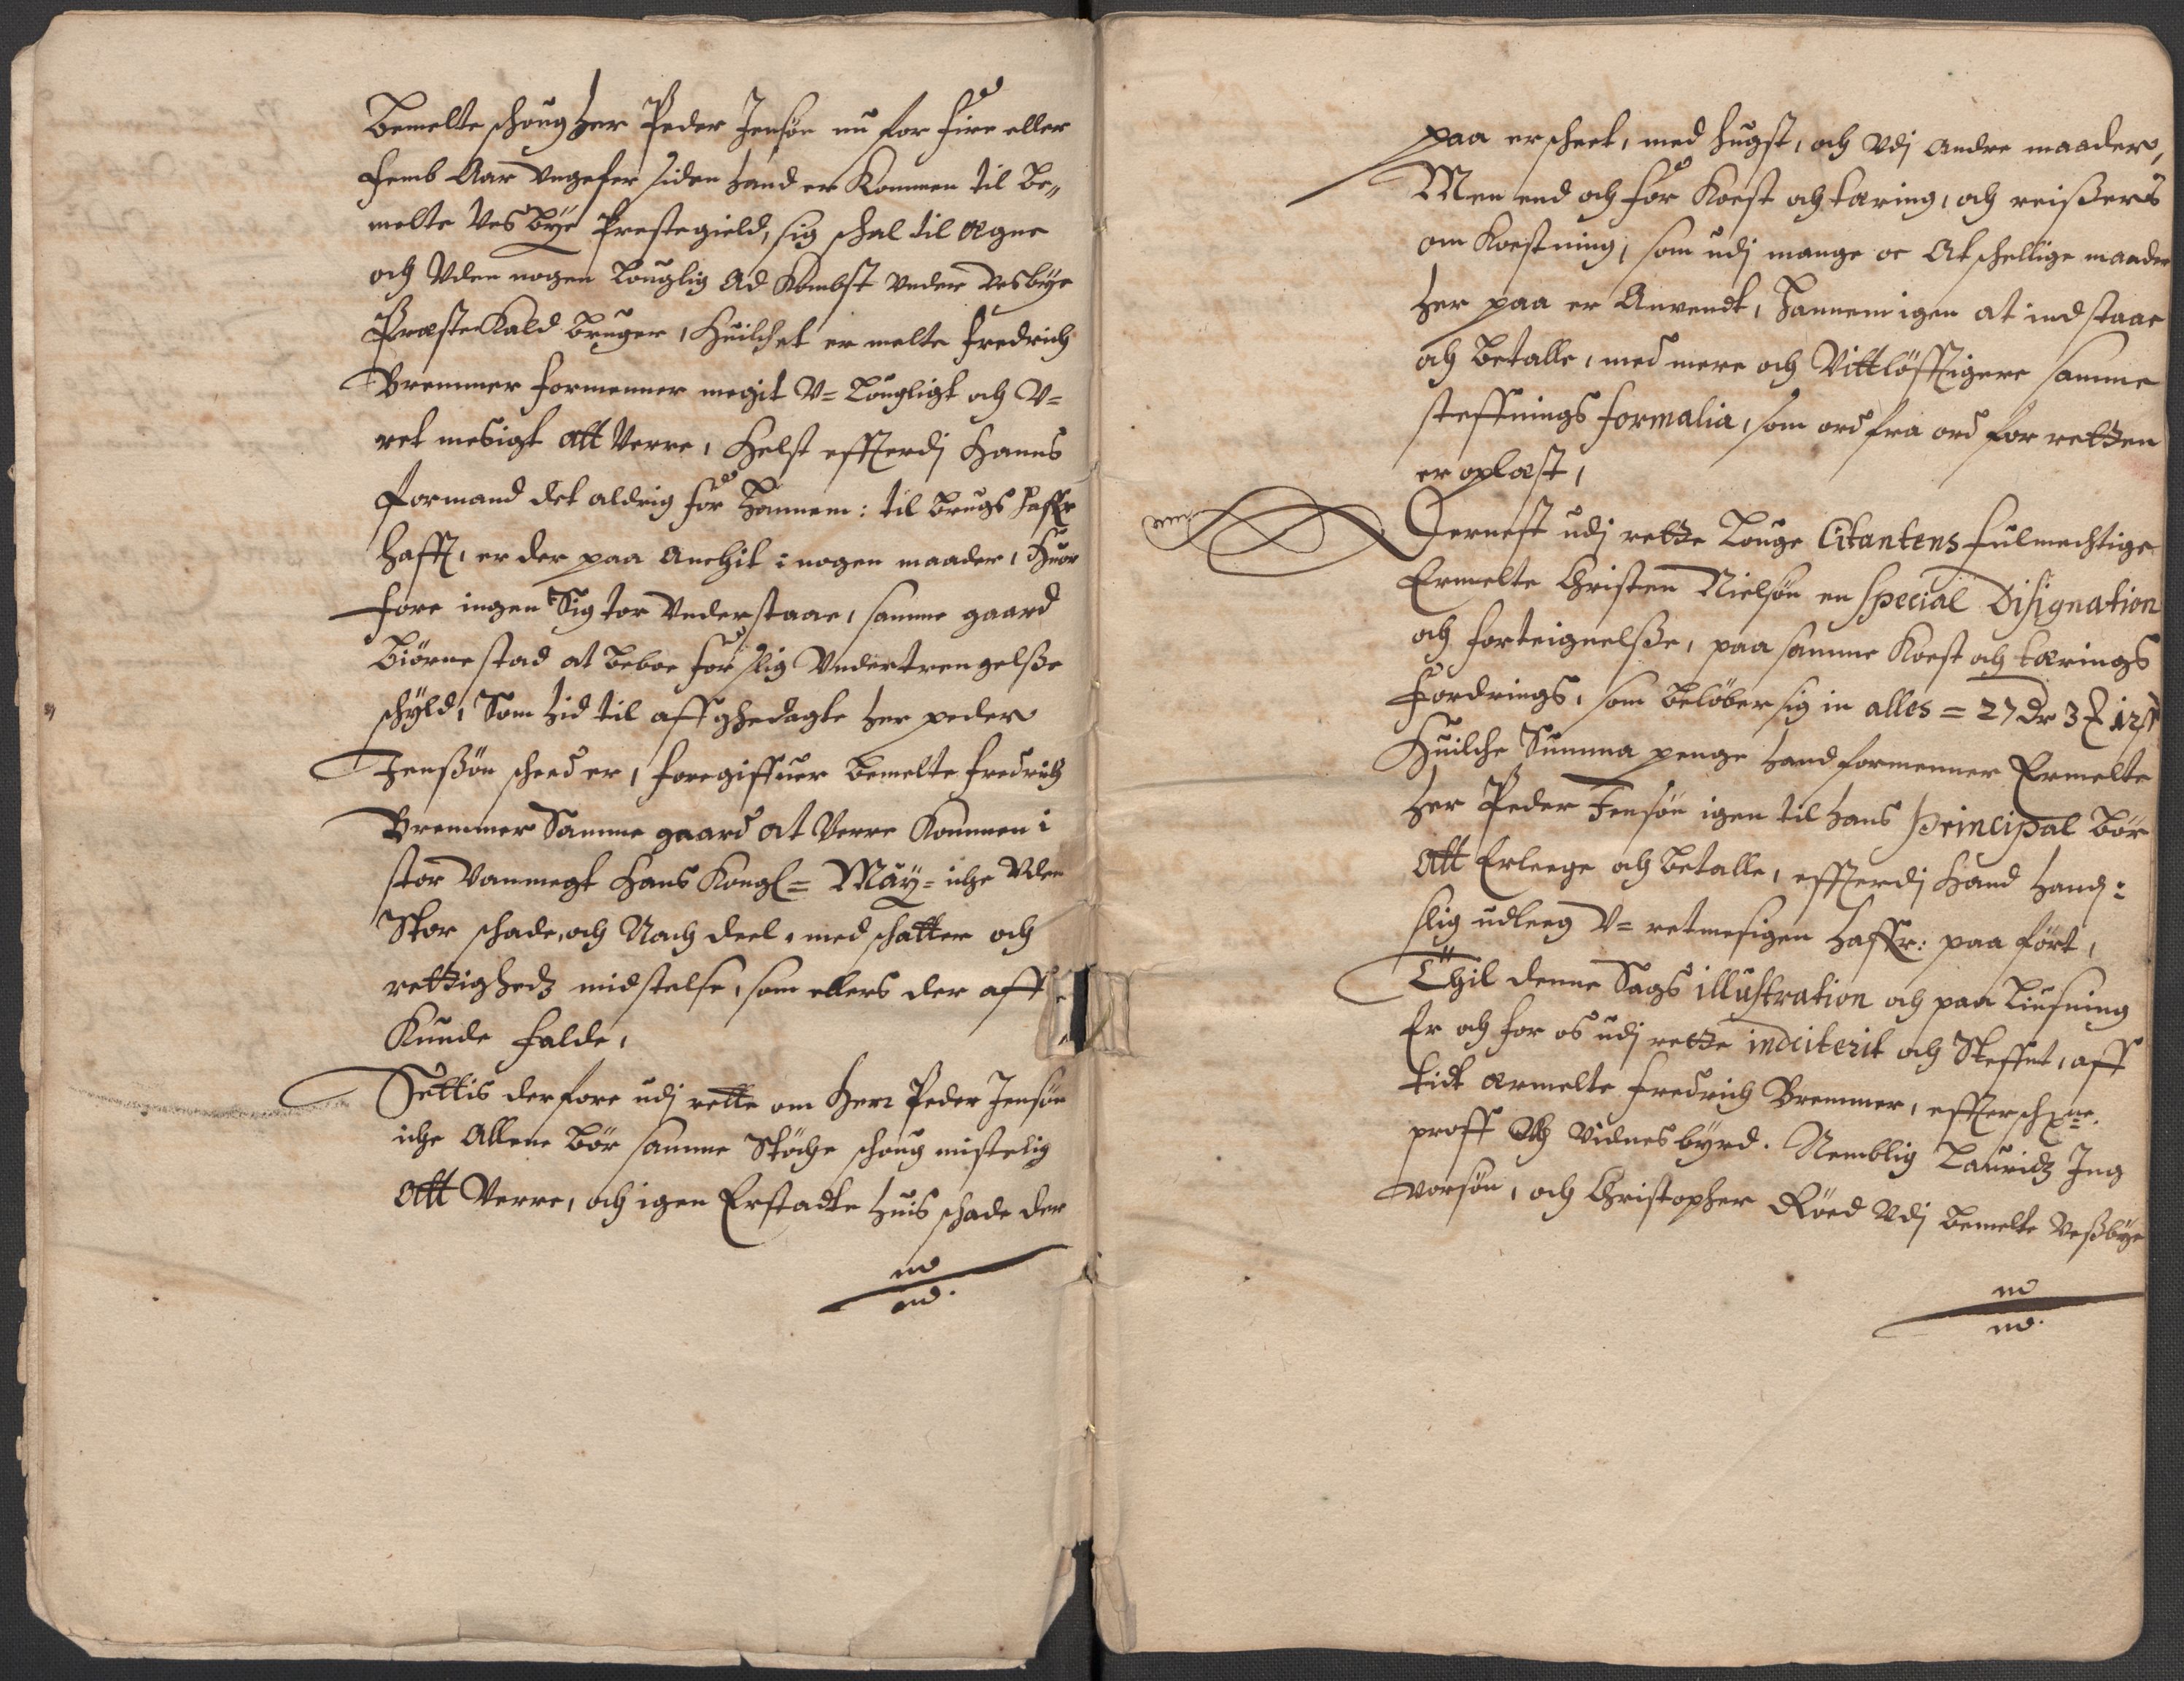 Bemelte schoug Her Peder Jensøn nu for fire eller
femb Aar ungefer siden hand er Kommen til Be„
melte Vesbye Prestegield, sig schal til Agne
och Vden nogen louglig Ad Kombst under Vesbye
PræsteKald Bruger, Huilchet er melte fredrich
Bremmer formenner megit V= Lougligt och V=
ret mesigt att Verre, Helst effterdj Hanns
formand det aldrig for Hannem: til brugs haffr
hafft, er der paa Anchit i nogen maader, Huor
fore ingen Sig tor Vnderstaae, samme gaard
Biørnestad at beboe for slig Vndertrengelsse
schyld, Som hid til aff ghedagte her peder
Jenssøn scheed er, foregiffuer bemelte fredrich
Bremmer Samme gaard at Verre Kommen i
stor Vanmagt Hans Kongl= May= iche Vden
Stor schade, och Nach deel, med schatter och
rettighedz midstelse, som ellers der aff
Kunde falde,
Settis derfore udj rette om Herr Peder Jensøn
iche Allene bør samme Støche schoug mistelig
Att Verre, och igen Erstadte huis schade der
paa er scheet, med hugst, och Vdj Andre maader,
Men end och for Koest och tæring, och reissers
om Koestning, som udj mange oc Atschellige maader
her paa er Anvendt, Hannem igen at indstaae
och betalle, med mere och Vittløfftigere samme
steffnings formalia, som ord fra ord for retten
er oplæst,
Dernest udj rette Louge Citantens fulmechtige
Ermelte Christen Nielsøn en special Disignation
och forteignelsse, paa samme Koest och tærings
fordrings, som beløber sig in alles = 27 dr 3 12 ß
Huilche Summa penge hand formenner Ermelte
Her Peder Jensøn igen til hans principal bør
Att Erlegge och betalle, effterdj Hand handj:
slig udleeg V= retmesigen haffr: paa ført,
Thil denne Sags illustration och paa Liusning
Er och for os udj rette inciterit och Steffnt, aff
tidt ærmelte fredrich Bremmer, effterschne:
proff Och vidnesbyrd. Nemblig Lauridz Ing
vorsøn, och Christopher Røed Vdj bemelte Vessbye